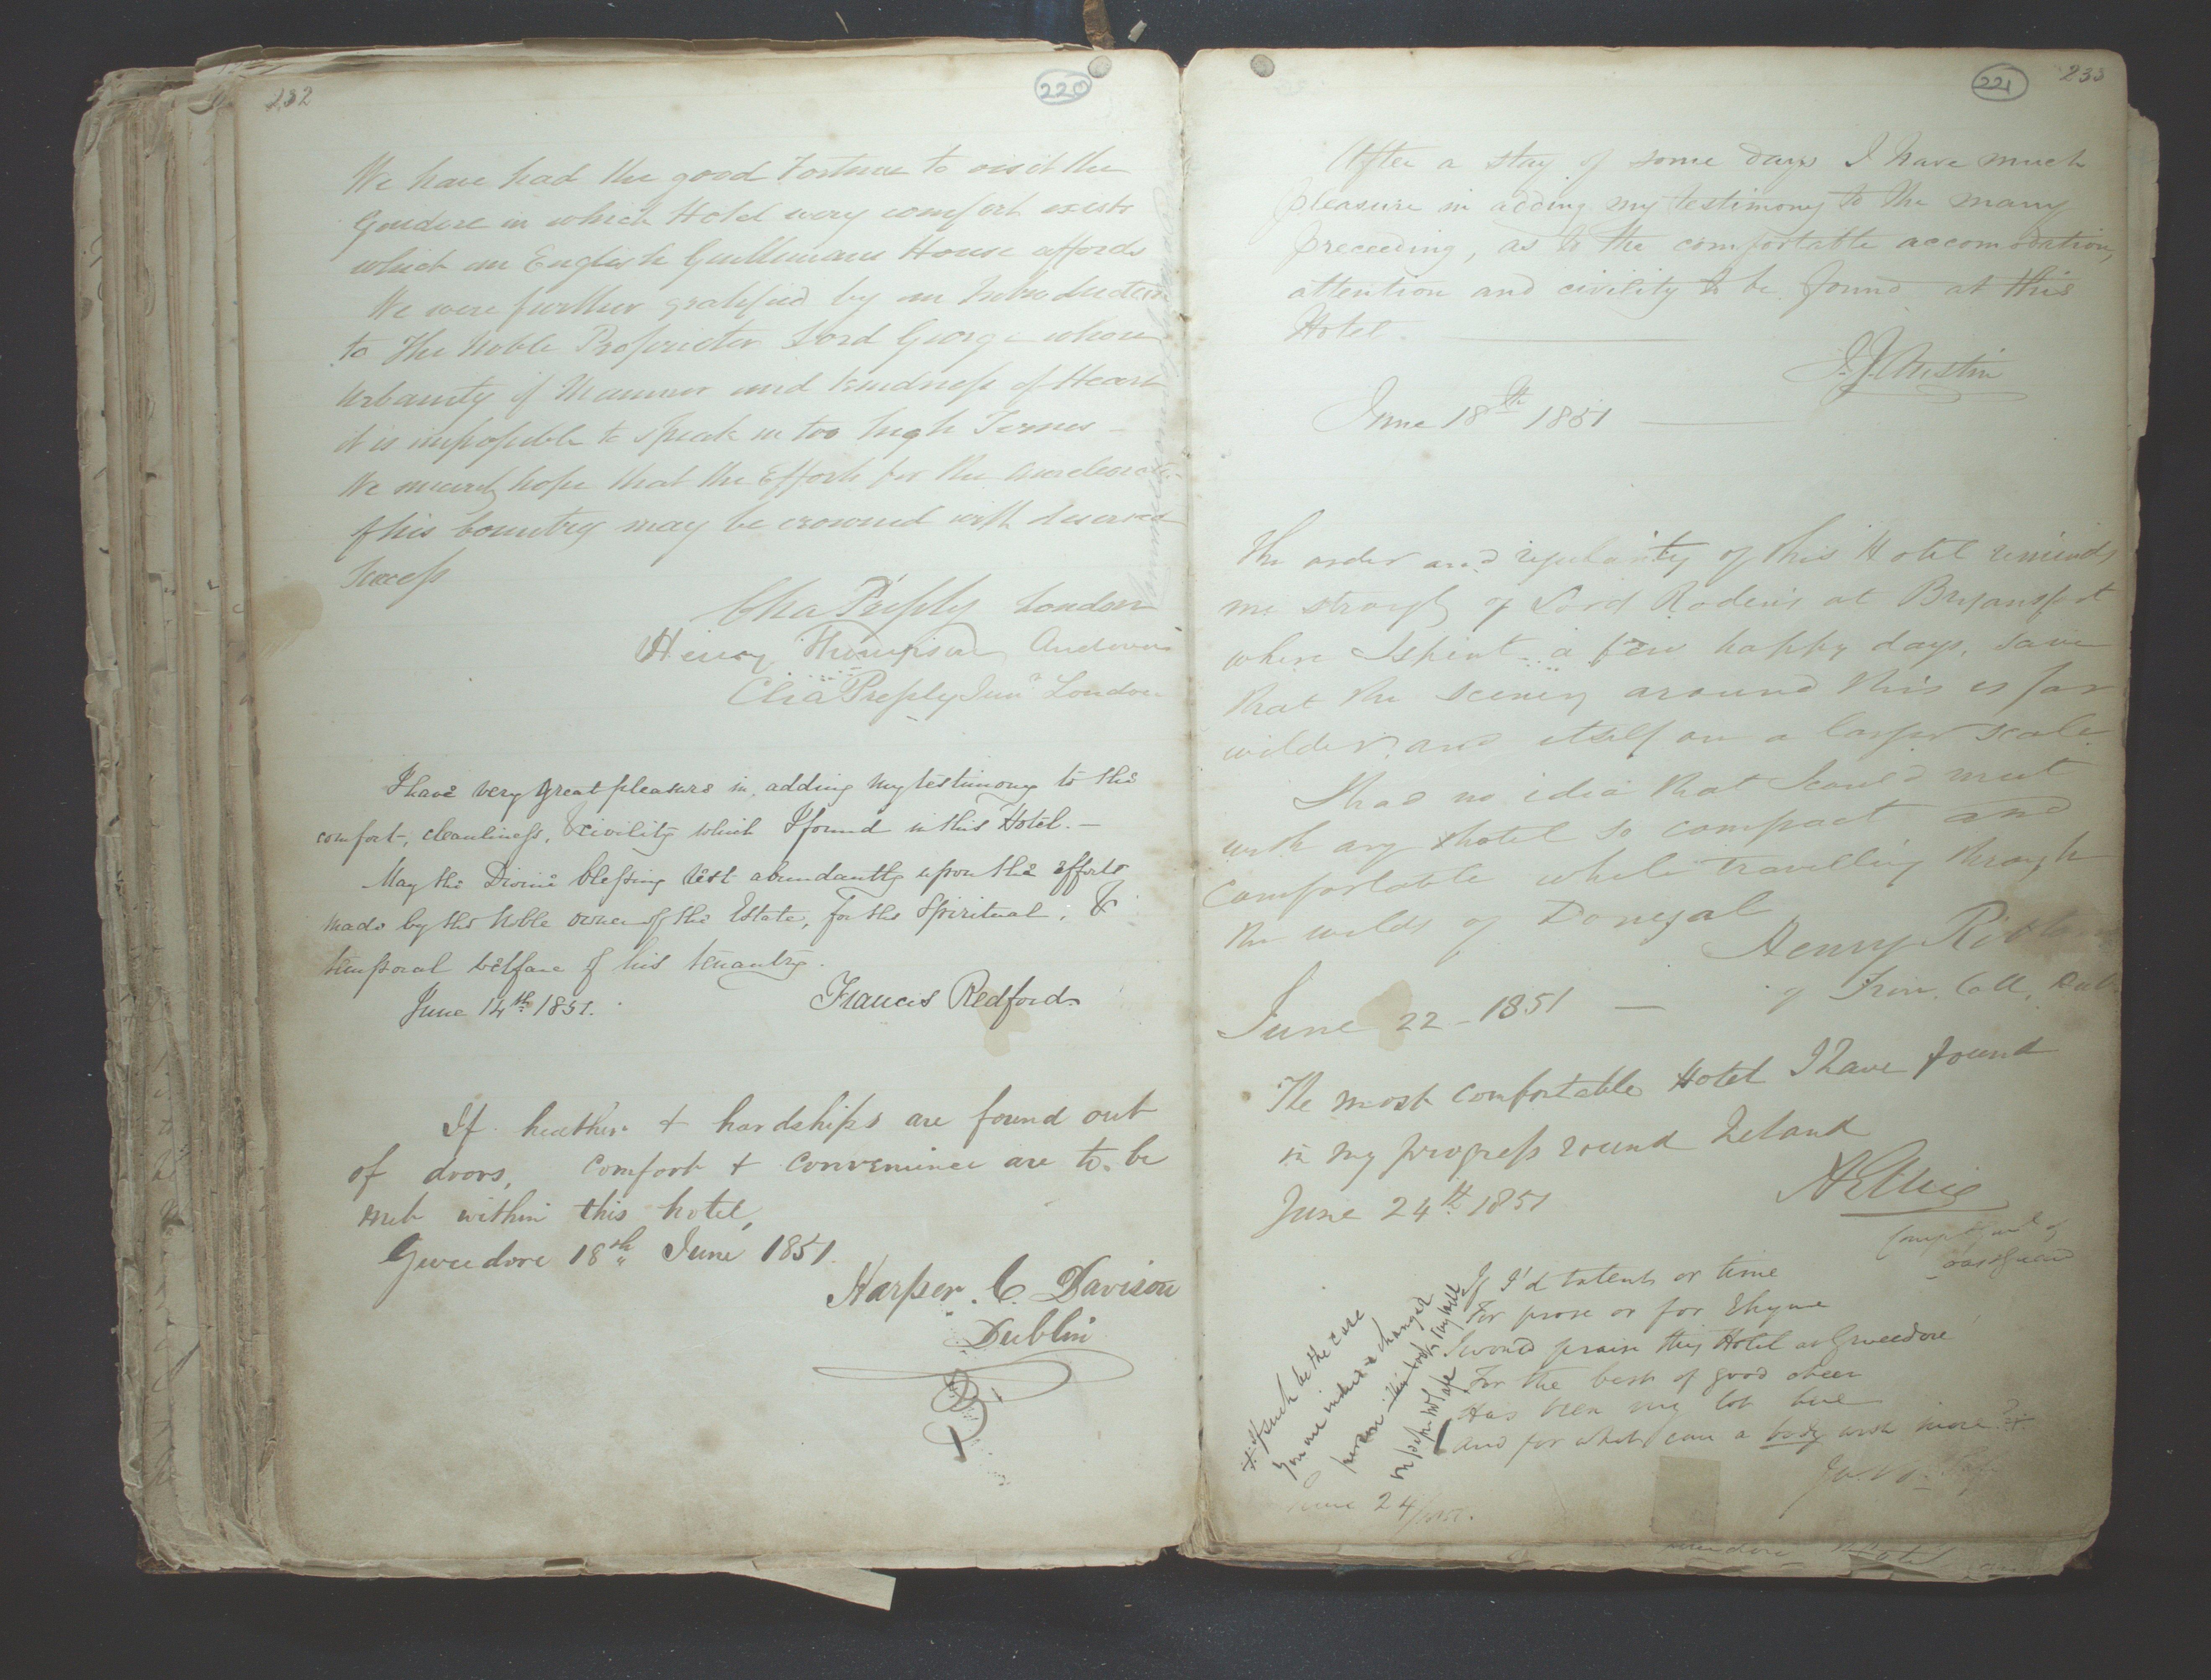 232
220
We have had the good Fortune to visit the
Guedore in which Hotel every comfort exists
which an English Gentlemans House affords
We were further gratified by an Introduction
to The Noble Proprietor Lord George whose
Urbanity of Manner and kindness of Heart
it is impossible to speak in too high Terms -
We sincerely hope that the Efforts for the
of his Country may be crowned with deserved
Success
Cha Pressly London
Henry Thompson Andover
Cha Pressly Junr London
I have very great pleasure in adding my testimony to the
comfort, cleanliness, & civility which I found in this Hotel. -
May the Divine blessing rest abundantly upon the efforts
made by the Noble owner of the Estate, for the Spiritual, &
temporal welfare of his tenantry.
June 14th 1851.
Francis Redford
If heather & hardships are found out
of doors, Comfort & Convenience are to be
met within this hotel,
Gweedore 18th June 1851.
Harper C. Davison
Dublin
221
233
After a stay of some days I have much
pleasure in adding my testimony to the many
preceeding, as to the comfortable accomodation,
attention and civility to be found at this
Hotel.
J. J. Austin
June 18th 1851
The order and regularity of this Hotel reminds
me strongly of Lord Roden's at Bryansfort
where I spent a few happy days, save
that the scenery around this is far
wilder, and itself on a larger scale.
I had no idea that I could meet
with any hotel so compact and
comfortable while travelling through
the wilds of Donegal
Henry
of Trin. Coll. Dub
June 22 - 1851 -
The most comfortable Hotel I have found
in my progress round Ireland
June 24th 1851
A Ellis
Comp Genl of
Coast Guard
If I'd talents or time
For prose or for Rhyme
I would praise this Hotel at Gweedore
For the best of good cheer
Has been my lot here
And for what can a body wish more? *
* If such be the case
You are indeed a changed
person
June 24/1851.